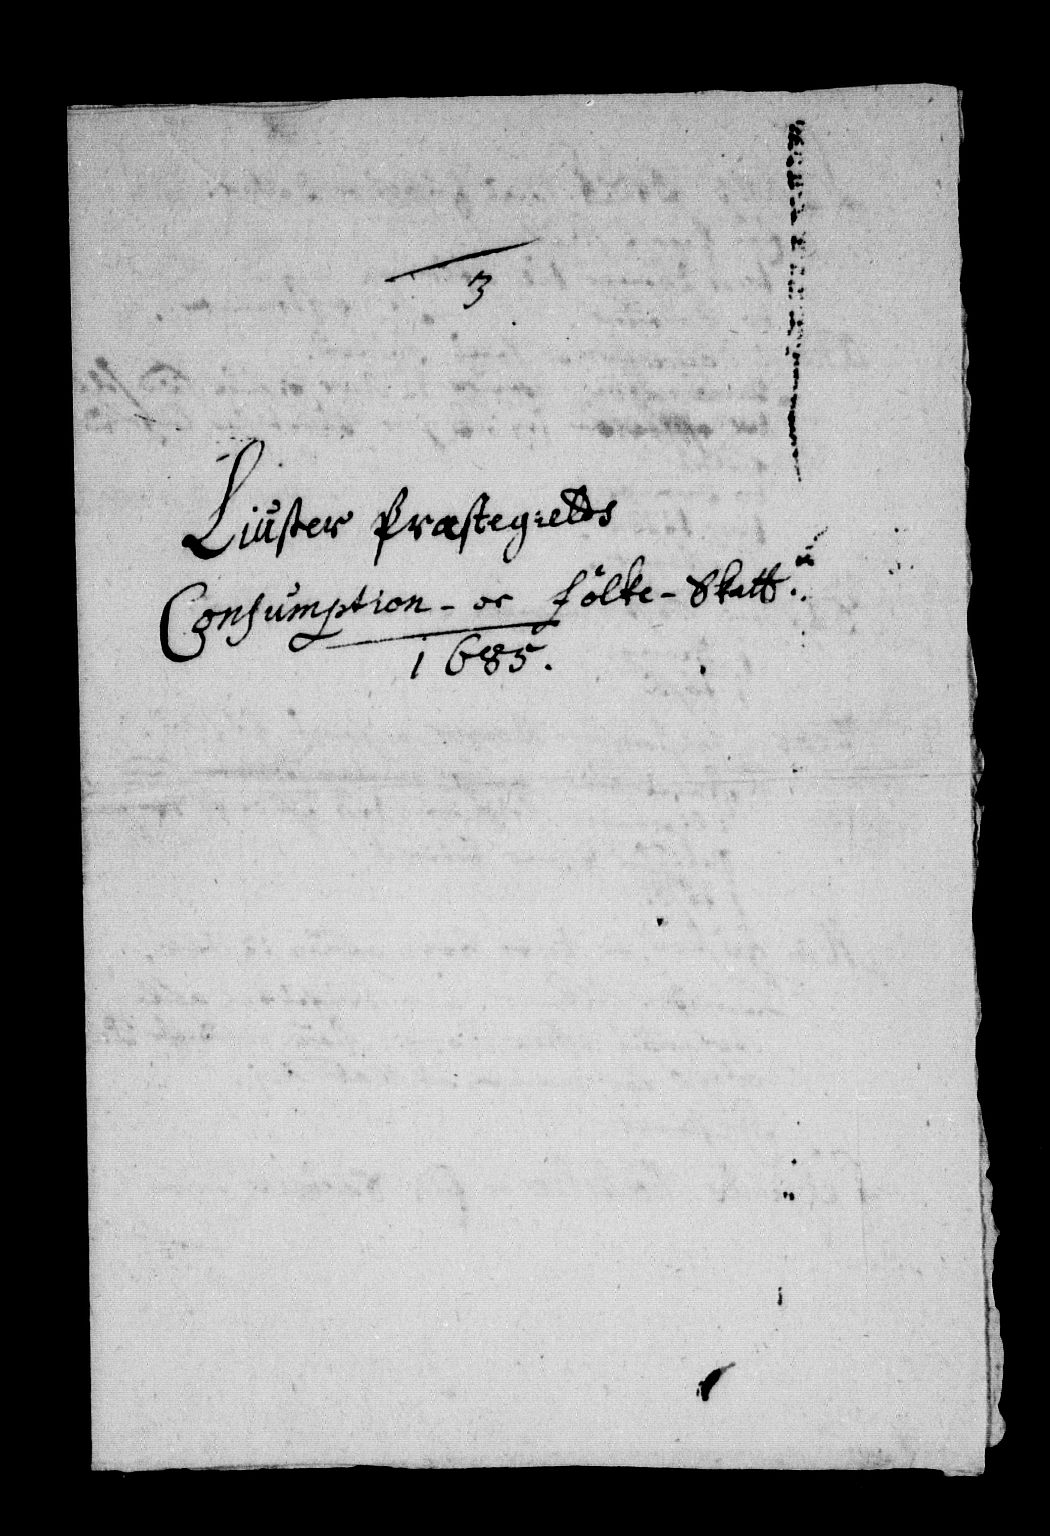 3
Liuster Præstegields
Consumption- oc folke-Skatt.
1685.